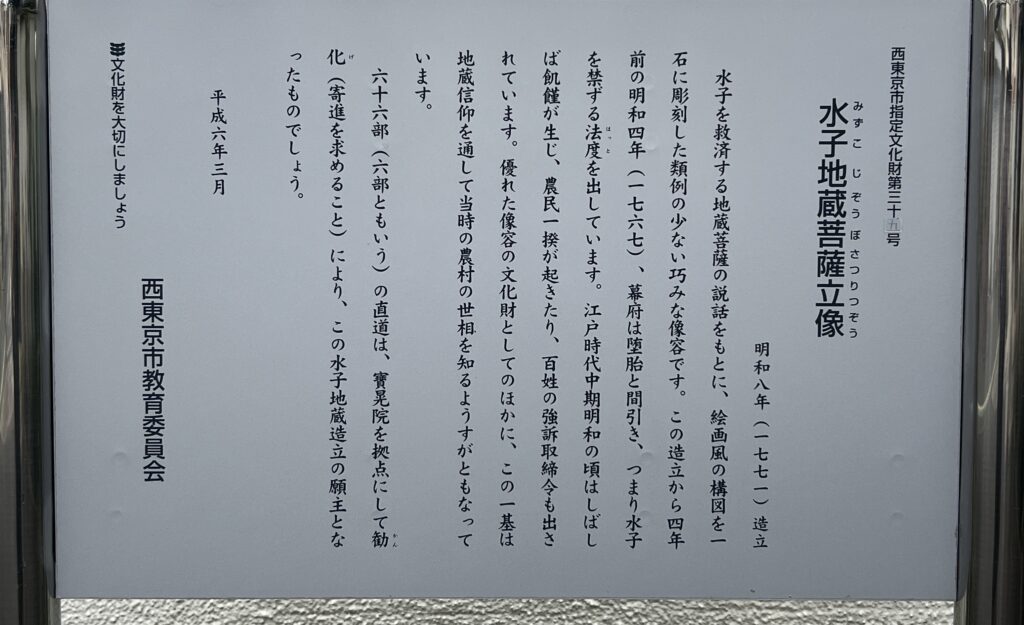 西東京市指定文化財第三十五号
みずこじぞうぼさつりつぞう
水子地蔵菩薩立像
明和八年（一七七一）造立
水子を救済する地蔵菩薩の説話をもとに、絵画風の構図を一
石に彫刻した類例の少ない巧みな像容です。この造立から四年
前の明和四年（一七六七）、幕府は堕胎と間引き、つまり水子
を禁ずる法度を出しています。江戸時代中期明和の頃はしばし
はっと
ば飢饉が生じ、農民一揆が起きたり、百姓の強訴取締令も出さ
れています。優れた像容の文化財としてのほかに、この一基は
地蔵信仰を通して当時の農村の世相を知るようすがともなって
います。
六十六部（六部ともいう）の直道は、寶晃院を拠点にして勧
かん
化（寄進を求めること）により、この水子地蔵造立の願主とな
げ
ったものでしょう。
平成六年三月
西東京市教育委員会
文化財を大切にしましょう